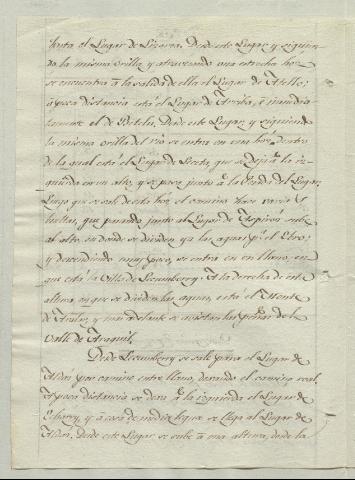 hasta el Lugar de Lizarza. Desde este Lugar, y siguien-
do la misma orilla y atravesando una estrecha hoz
se encuentra à la salida de ella el Lugar de Atallo;
à poca distancia està el Lugar de Arriba, è inmedia-
tamente el de Betelu. Desde este Lugar, y siguiendo
la misma orilla del rio se entra en una hoz dentro
de la qual està el Lugar de Lezeta, que se deja à la iz-
quierda en un alto, y se pasa junto à la Venta del Lugar.
Luego que se sale de esta hoz, el camino hace varias
bueltas, que pasando junto al Lugar de Azpiroz sube
al alto, en donde se dividen ya las aguas pª. el Ebro;
y descendiendo muy poco, se entra en un llano, en
que està la Villa de Lecumberry. A la derecha de esta
altura en que se dividen las aguas, està el Monte
de Aralar, y mas adelante se avistan las peñas de la
Valle de Araquil.
Desde Lecumberry se sale para el Lugar de
Aldaz por camino entre llano, dexando el camino real.
A poca distancia se dexa à la izquierda el Lugar de
Echarry, y à cosa de media legua se llega al Lugar de
Aldaz. Desde este Lugar se sube à una altura, desde la